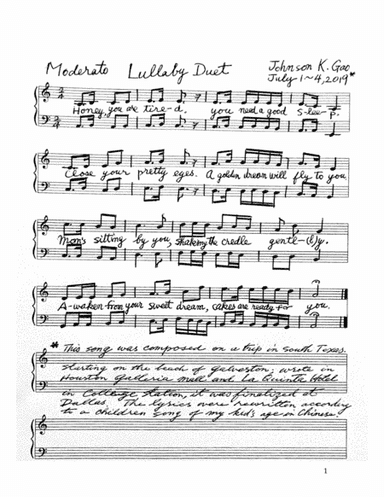 Moderato Lullaby Duet Johnson K. Gao
July 1~4, 2019*
Honey, you are tire-d. you need a good s-lee-p.
Close your pretty eyes. A golden dream will fly to you
Mom's sitting by you, shaking the credle gentle-(l)y.
A-waken from your sweet dream, cakes are ready for you.
* This song was composed on a trip in south Texas.
starting on the beach of Galveston; wrote in
Houston Galleria mall and La Quinta Hotel
in College Station, it was finalized at
Dallas. The lyrics were rewritten according
to a children song of my kid's age in Chinese.
1